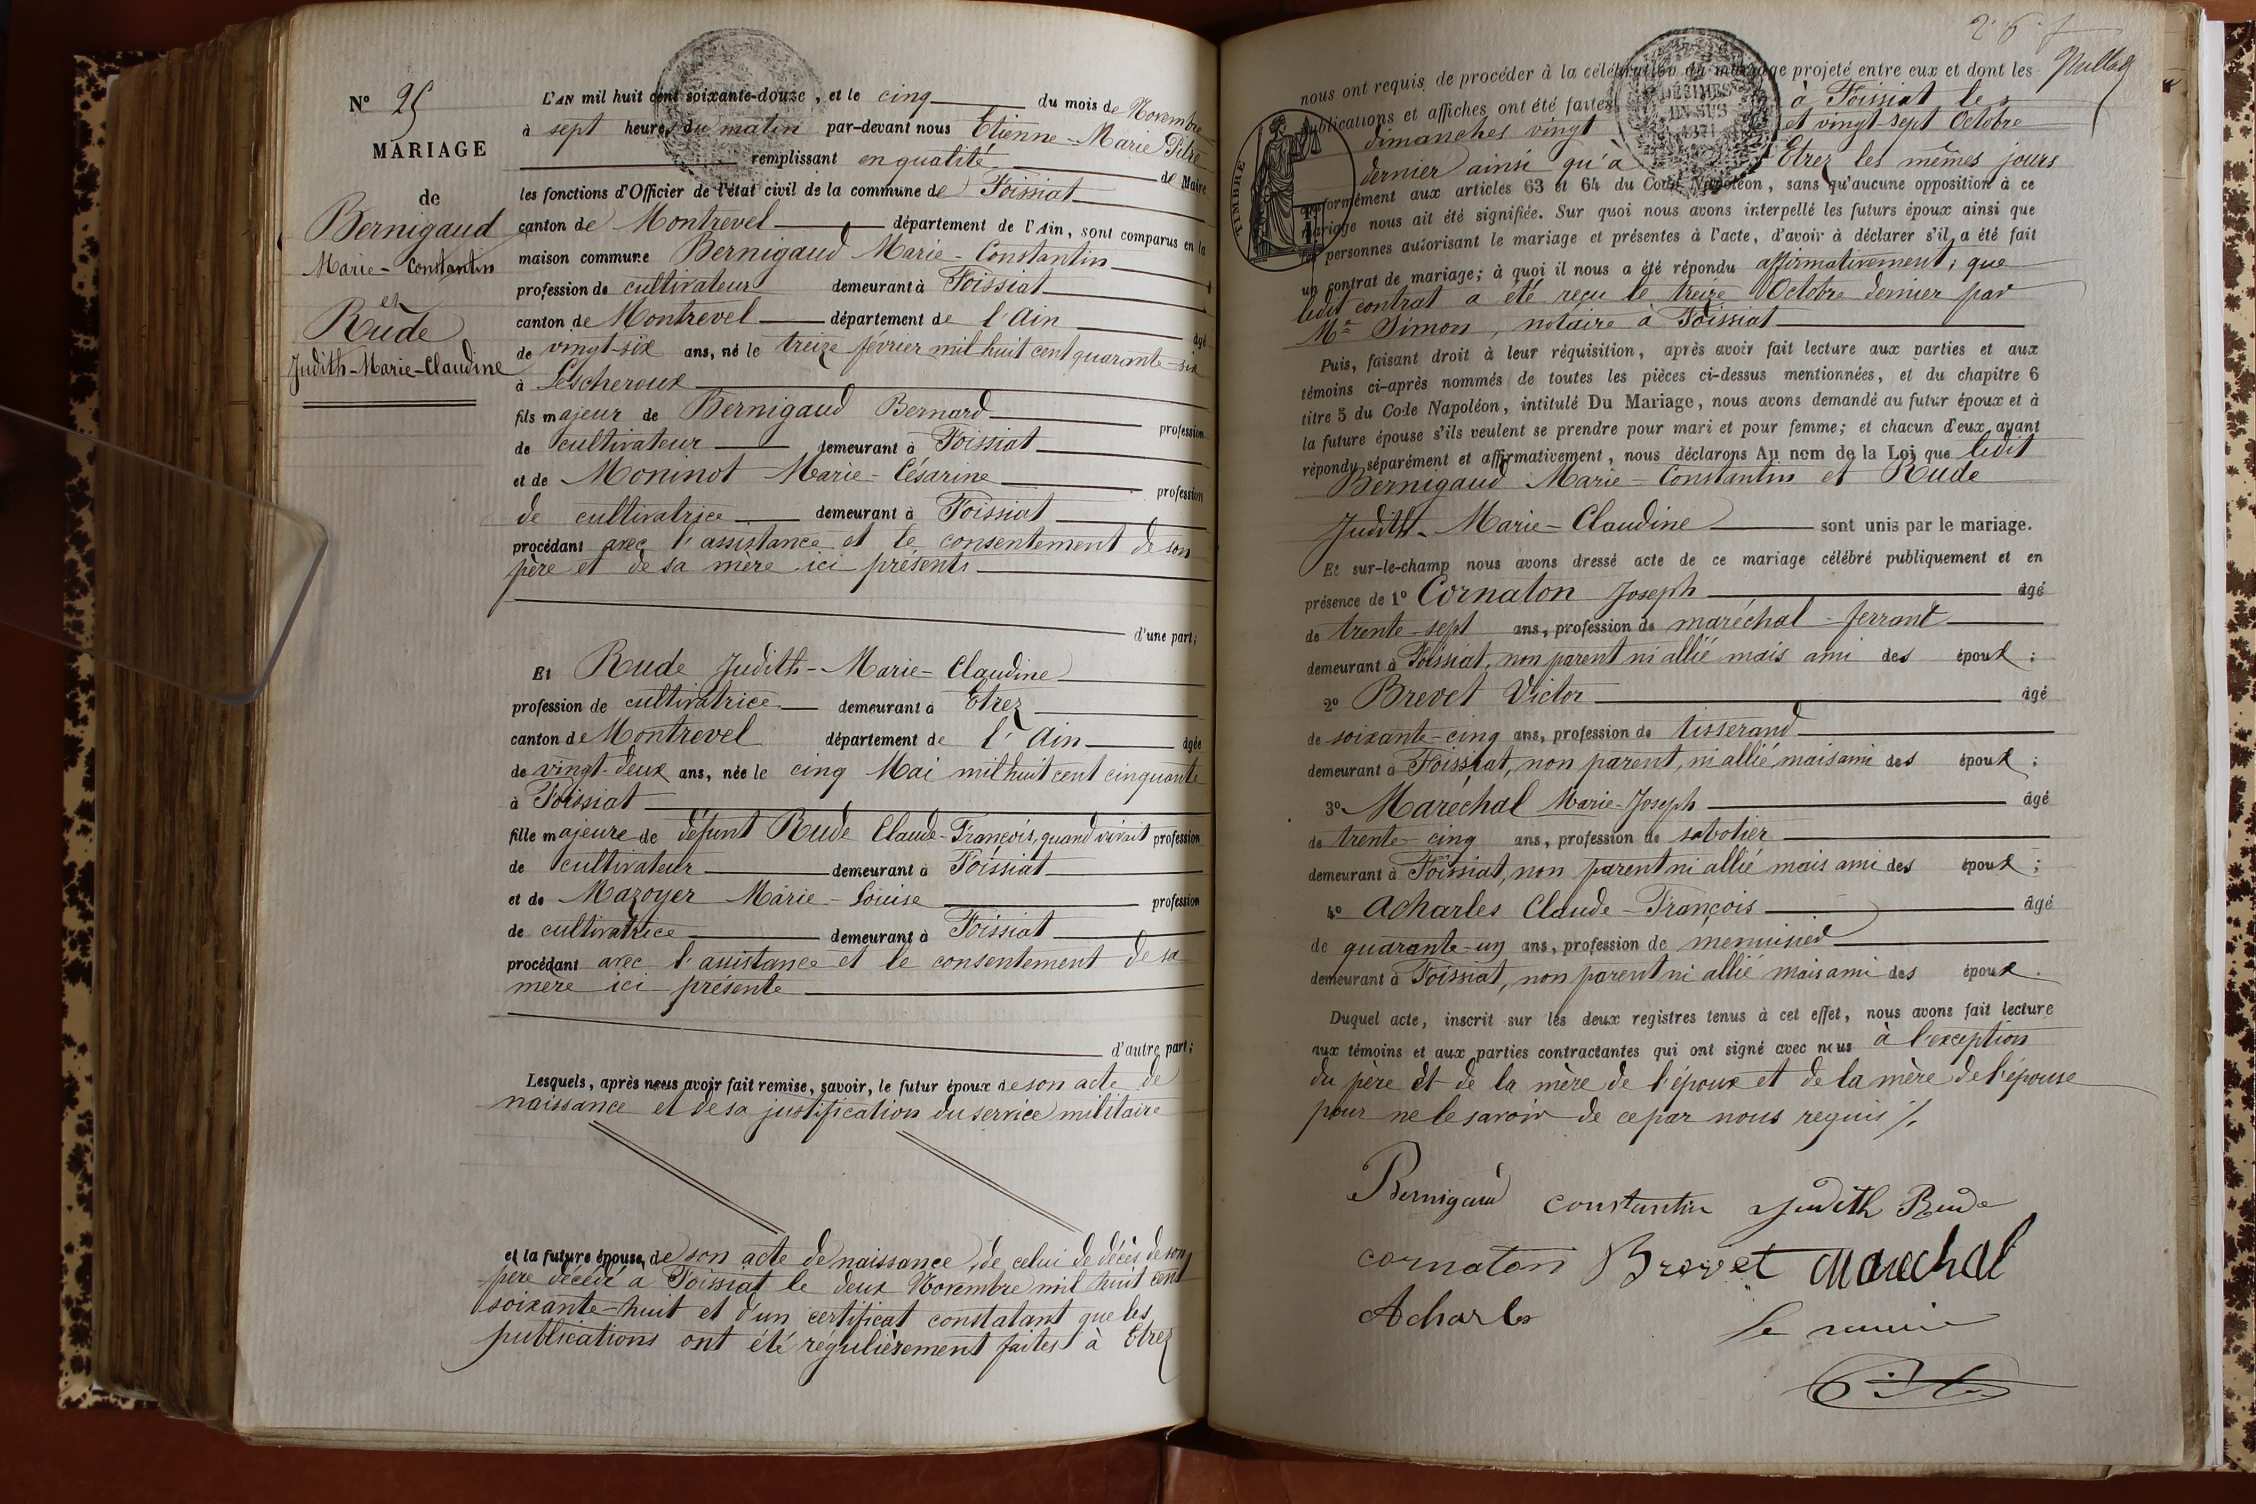 N° 25
MARIAGE
de
Bernigaud
Marie-Constantin
et
Rude
Judith-Marie-Claudine
L'AN mil huit cent soixante-douze, et le cinq du mois de Novembre
à sept heures du matin par-devant nous Etienne-Marie Pitre
remplissant en qualité de Maire
les fonctions d'Officier de l'état civil de la commune de Foissiat
canton de Montrevel département de l'Ain, sont comparus en la
maison commune Bernigaud Marie-Constantin
profession de cultivateur demeurant à Foissiat
canton de Montrevel département de l'Ain âgé
de vingt-six ans, né le treize février mil huit cent quarante-six
à Lescheroux
fils majeur de Bernigaud Bernard profession
de cultivateur demeurant à Foissiat
et de Moninot Marie-Césarine profession
de cultivatrice demeurant à Foissiat
procédant avec l'assistance et le consentement de son
père et de sa mère ici présents
d'une part;
Et Rude Judith-Marie-Claudine
profession de cultivatrice demeurant à Etrez
canton de Montrevel département de l'Ain âgée
de vingt-deux ans, née le cinq Mai mil huit cent cinquante
à Foissiat
fille majeure de défunt Rude Claude-François, quand vivait profession
de cultivateur demeurant à Foissiat
et de Mazoyer Marie-Louise profession
de cultivatrice demeurant à Foissiat
procédant avec l'assistance et le consentement de sa
mère ici présente
d'autre part;
Lesquels, après nous avoir fait remise, savoir, le futur époux de son acte de
naissance et de sa justification du service militaire
et la future épouse, de son acte de naissance, de celui de décès de son
père décédé à Foissiat le deux Novembre mil huit cent
soixante-huit et d'un certificat constatant que les
publications ont été régulièrement faites à Etrez
267
nous ont requis de procéder à la célébration du mariage projeté entre eux et dont les
publications et affiches ont été faites à Foissiat les
dimanches vingt et vingt-sept Octobre
dernier ainsi qu'à Etrez les mêmes jours
conformément aux articles 63 et 64 du Code Napoléon, sans qu'aucune opposition à ce
mariage nous ait été signifiée. Sur quoi nous avons interpellé les futurs époux ainsi que
les personnes autorisant le mariage et présentes à l'acte, d'avoir à déclarer s'il a été fait
un contrat de mariage; à quoi il nous a été répondu affirmativement; que
ledit contrat a été reçu le treize Octobre dernier par
Me Simon, notaire à Foissiat
Puis, faisant droit à leur réquisition, après avoir fait lecture aux parties et aux
témoins ci-après nommés de toutes les pièces ci-dessus mentionnées, et du chapitre 6
titre 5 du Code Napoléon, intitulé Du Mariage, nous avons demandé au futur époux et à
la future épouse s'ils veulent se prendre pour mari et pour femme; et chacun d'eux ayant
répondu séparément et affirmativement, nous déclarons Au nom de la Loi que ledit
Bernigaud Marie-Constantin et Rude
Judith-Marie-Claudine sont unis par le mariage.
Et sur-le-champ nous avons dressé acte de ce mariage célébré publiquement et en
présence de 1° Cornaton Joseph âgé
de trente-sept ans, profession de maréchal-ferrant
demeurant à Foissiat, non parent ni allié mais ami des époux;
2° Brevet Victor âgé
de soixante-cinq ans, profession de tisserand
demeurant à Foissiat, non parent, ni allié, mais ami des époux;
3° Maréchal Marie-Joseph âgé
de trente-cinq ans, profession de sabotier
demeurant à Foissiat, non parent ni allié mais ami des époux;
4° Acharles Claude-François âgé
de quarante-un ans, profession de menuisier
demeurant à Foissiat, non parent ni allié mais ami des époux.
Duquel acte, inscrit sur les deux registres tenus à cet effet, nous avons fait lecture
aux témoins et aux parties contractantes qui ont signé avec nous à l'exception
du père et de la mère de l'époux et de la mère de l'épouse
pour ne le savoir de ce par nous requis /.
Bernigaud Constantin Judith Rude
cornaton Brevet Marechal
Acharles Le maire
TIMBRE
DÉCIMES
EN SUS
1871